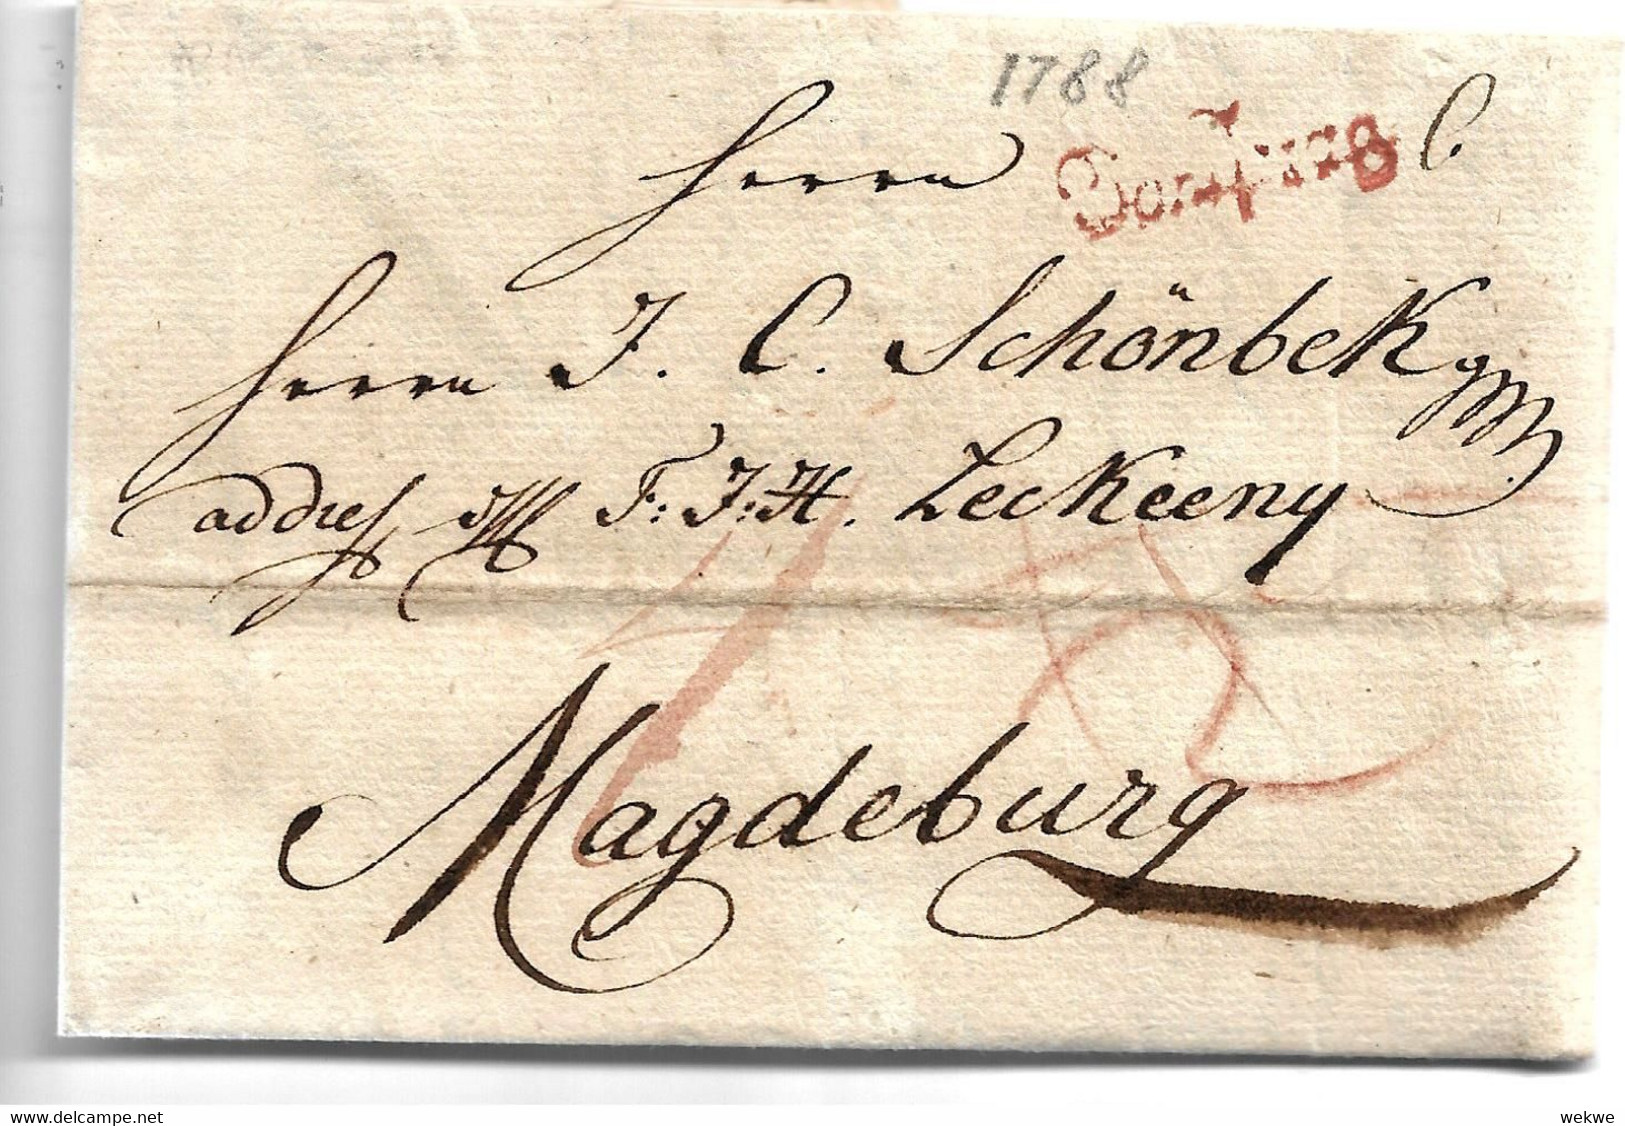 1788
Herrn
Herrn J. C. Schönbek
addreß F: J: H. Leckeeny
Magdeburg
delcampe.net
wekwe